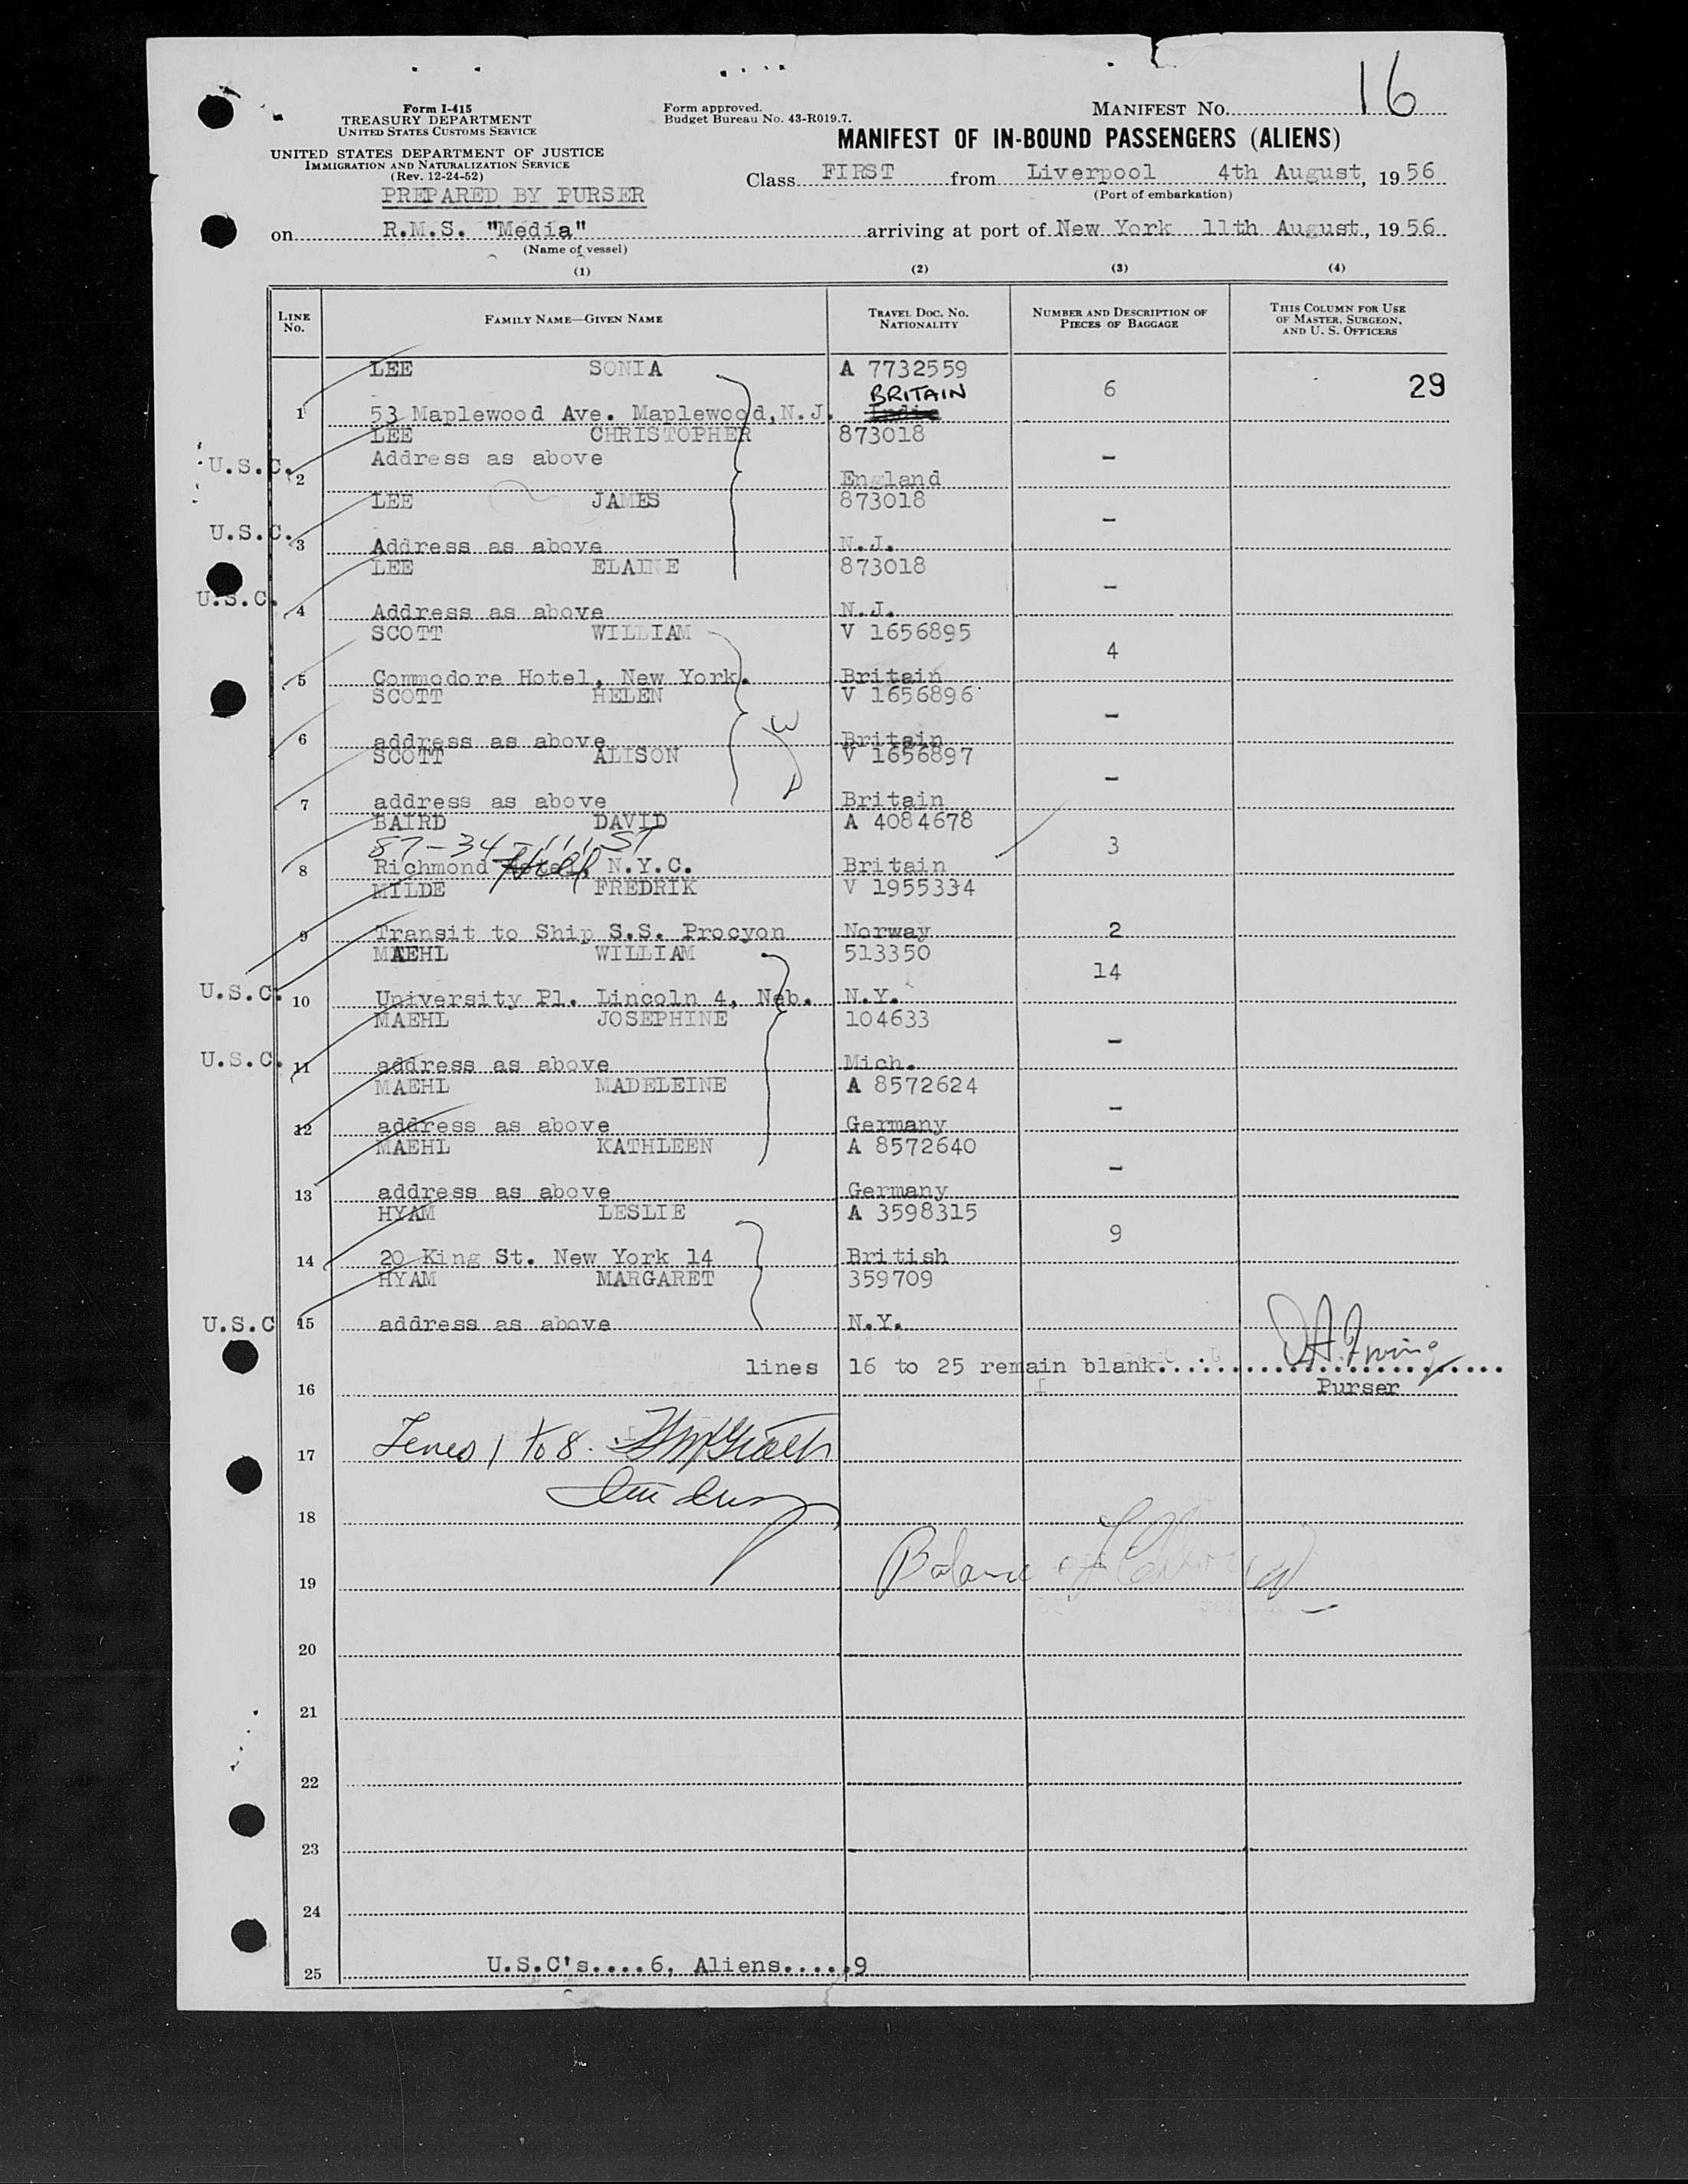 16
Form I-415
TREASURY DEPARTMENT
UNITED STATES CUSTOMS SERVICE
Form approved.
Budget Bureau No. 43-R019.7.
MANIFEST NO.
UNITED STATES DEPARTMENT OF JUSTICE
IMMIGRATION AND NATURALIZATION SERVICE
(Rev. 12-24-52)
PREPARED BY PURSER
MANIFEST OF IN-BOUND PASSENGERS (ALIENS)
Class FIRST from Liverpool 4th August, 1956
(Port of embarkation)
on R.M.S. "Media" arriving at port of New York 11th August, 1956
(Name of vessel)
(1) (2) (3) (4)
LINE No. FAMILY NAME—GIVEN NAME TRAVEL DOC. NO. NATIONALITY NUMBER AND DESCRIPTION OF PIECES OF BAGGAGE THIS COLUMN FOR USE OF MASTER, SURGEON, AND U. S. OFFICERS
LEE SONIA A 7732559
BRITAIN 6 29
1 53 Maplewood Ave. Maplewood, N.J. India
LEE CHRISTOPHER 873018
U.S.C. Address as above -
2 England
LEE JAMES 873018
U.S.C. -
3 Address as above N.J.
LEE ELAINE 873018
U.S.C. -
4 Address as above N.J.
SCOTT WILLIAM V 1656895
4
5 Commodore Hotel, New York. Britain
SCOTT HELEN V 1656896
-
6 address as above Britain
SCOTT ALISON V 1656897
-
7 address as above Britain
BAIRD DAVID A 4084678
87-34-111 ST 3
8 Richmond Hill N.Y.C. Britain
MILDE FREDRIK V 1955334
9 Transit to Ship S.S. Procyon Norway 2
MAEHL WILLIAM 513350
14
U.S.C. 10 University Pl. Lincoln 4, Neb. N.Y.
MAEHL JOSEPHINE 104633
-
U.S.C. 11 address as above Mich.
MAEHL MADELEINE A 8572624
-
12 address as above Germany
MAEHL KATHLEEN A 8572640
-
13 address as above Germany
HYAM LESLIE A 3598315
9
14 20 King St. New York 14 British
HYAM MARGARET 359709
U.S.C 15 address as above N.Y.
lines 16 to 25 remain blank
16 Purser
17 Lines 1 to 8.
18
19 Balance of
20
21
22
23
24
25 U.S.C's....6, Aliens.....9